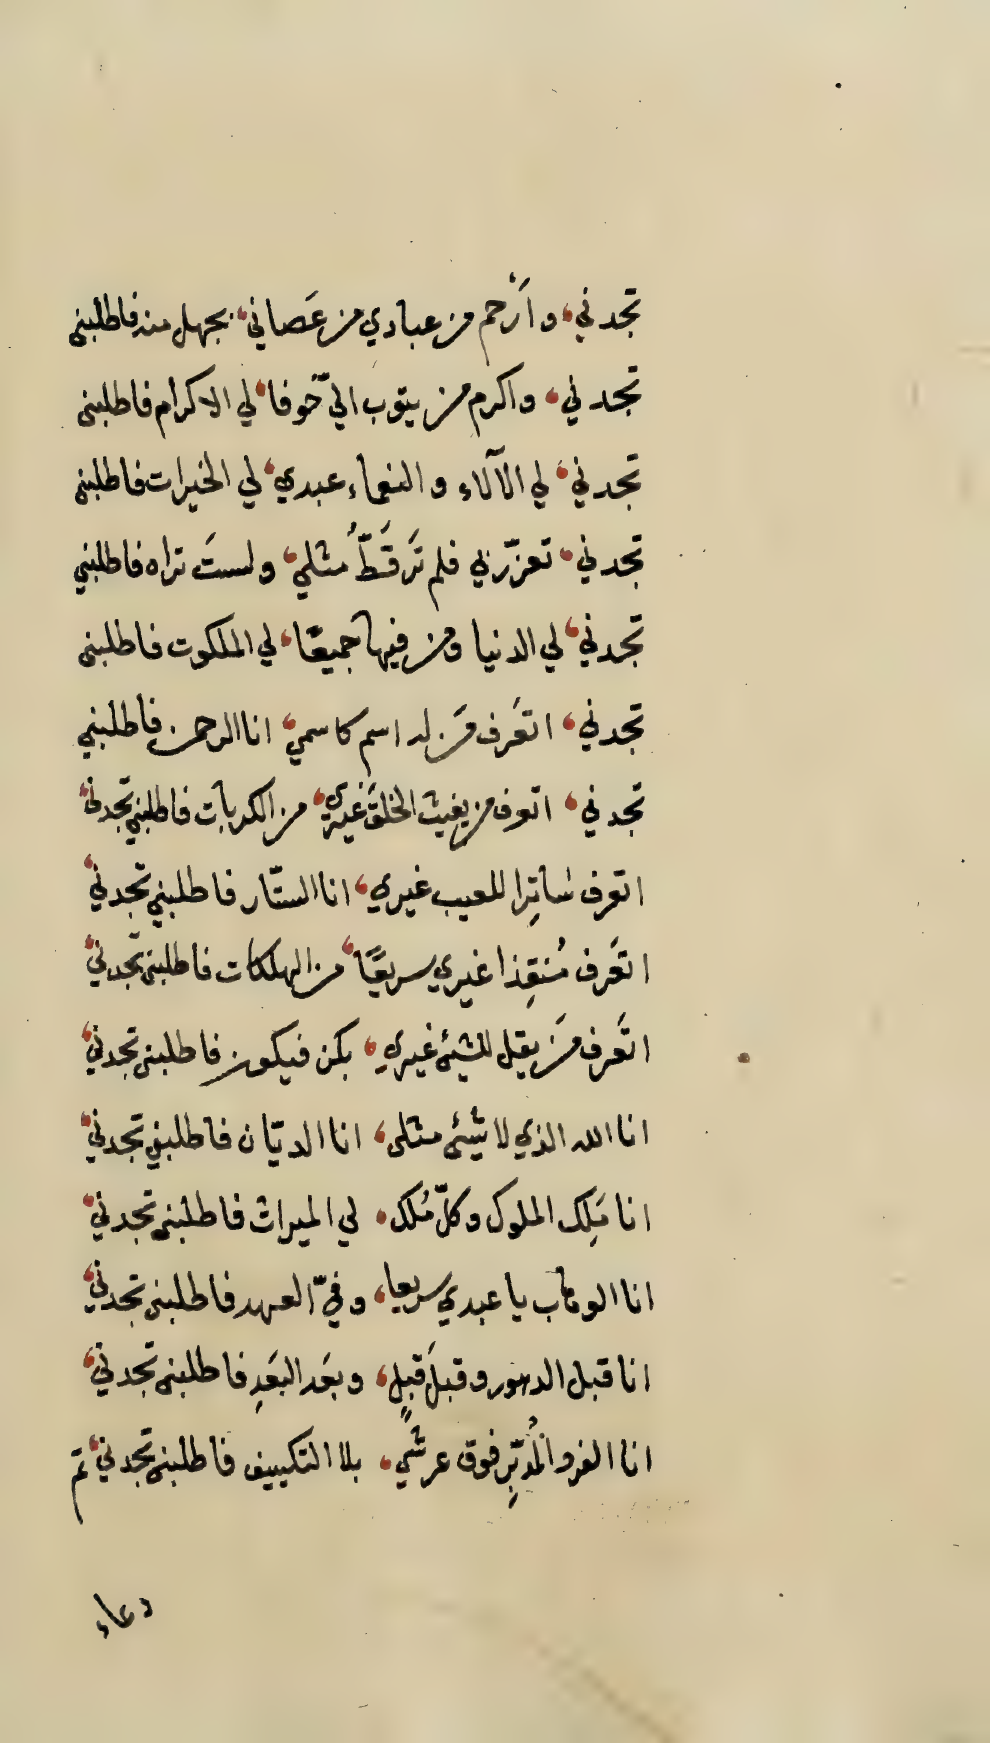 تجدني، وأَرْحم من عبادي من عَصاني، بجهل منه فاطلبني
تجدني، واكرم من يتوب اليّ خوفا، لي الاكرام فاطلبني
تجدني، لي الآلاء والنعماء عبدي، لي الخيرات فاطلبني
تجدني، تعزّزبي فلم تَر قَطّ مُثلي، ولستَ تراه فاطلبني
تجدني، لي الدنيا ومن فيها جميعًا، لي الملكوت فاطلبني
تجدني، اتعَرف مَن له اسم كاسمي، انا الرحمن فاطلبني
تجدني، اتعرف من يغيث الخلقَ غيري، من الكربات فاطلبني تجدني،
اتعرف ساتِرا للعيب غيري، انا الستّار فاطلبني تجدني،
اتعَرف مُنقِذا غيري سريعًا، من الهلكات فاطلبني تجدني،
اتَعرف مَن يقل للشيئ غيري، بكن فيكون فاطلبني تجدني،
انا الله الذي لا شيئَ مثلي، انا الديّان فاطلبني تجدني،
انا مَلِك الملوك وكلّ مُلك، لي الميراث فاطلبني تجدني،
انا الوهّاب يا عبدي سريعا، وفيّ العهد فاطلبني تجدني،
انا قبل الدهور وقبلَ قبلٍ، وبعَد البَعدِ فاطلبني تجدني،
انا الفرد المُدبِّر فوق عرشي، بلا التكييف فاطلبني تجدني، تم
دعاء